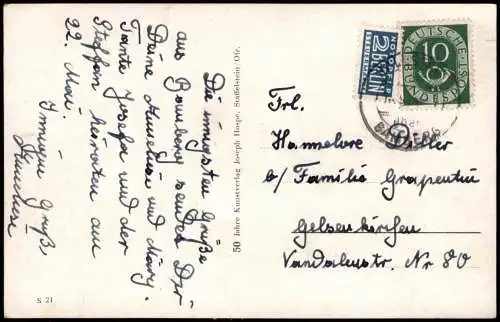 Die innigsten Grüße
aus Bamberg sendet Dir
Deine Anneliese und Mary.
Tante Josefa und der
Steffan heiraten am
22. Mai.
Innigen Gruß
50 Jahre Kunstverlag Joseph Haepe, Staffelstein Ofr.
S 21
NOTOPFER
2 BERLIN
STEUERMARKE
DEUTSCHE
BUNDESPOST
10
BAMBERG
Frl.
Hannelore
b/ Familie Grapentin
Gelsenkirchen
Vandalenstr. Nr 80